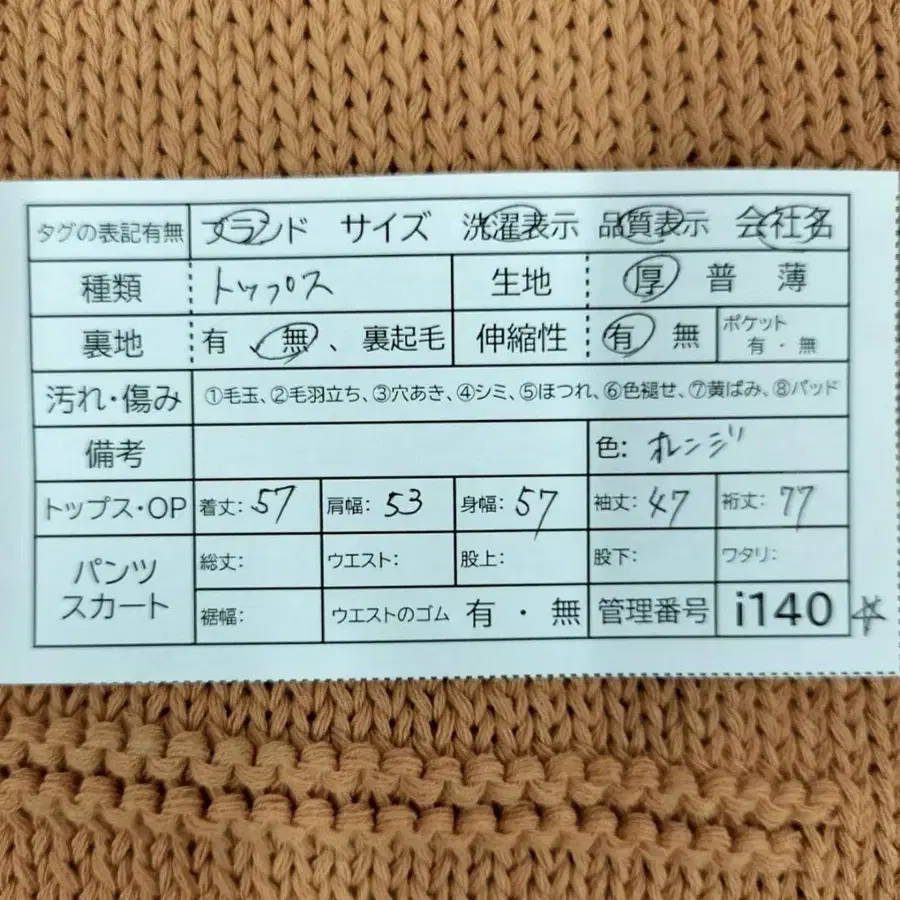 タグの表記有無 ブランド サイズ 洗濯表示 品質表示 会社名
種類 トップス 生地 厚 普 薄
裏地 有、無、裏起毛 伸縮性 有 無 ポケット 有・無
汚れ・傷み ①毛玉、②毛羽立ち、③穴あき、④シミ、⑤ほつれ、⑥色褪せ、⑦黄ばみ、⑧パッド
備考 色: オレンジ
トップス・OP 着丈: 57 肩幅: 53 身幅: 57 袖丈: 47 裄丈: 77
パンツ スカート 総丈: ウエスト: 股上: 股下: ワタリ:
裾幅: ウエストのゴム 有・無 管理番号 i140